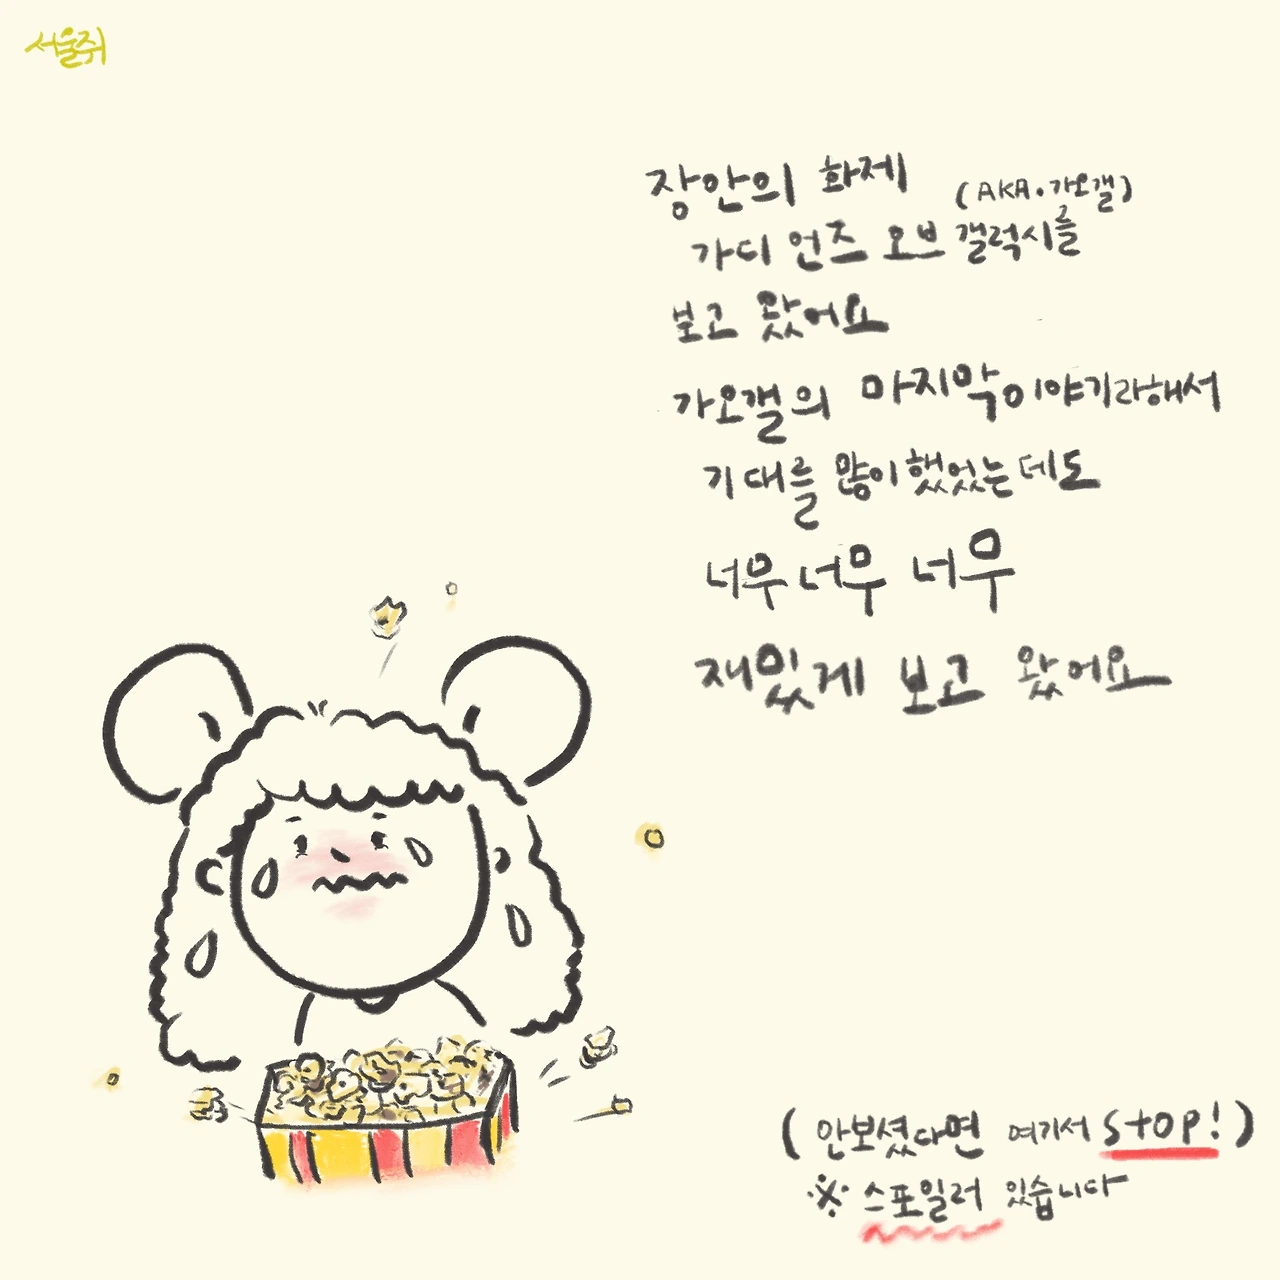 서울쥐
장안의 화제
(AKA.가오갤)
가디언즈 오브 갤럭시를
보고 왔어요
가오갤의 마지막이야기라해서
기대를 많이했었는데도
너무너무 너무
재밌게 보고 왔어요
(안보셨다면 여기서 stop!)
※스포일러 있습니다